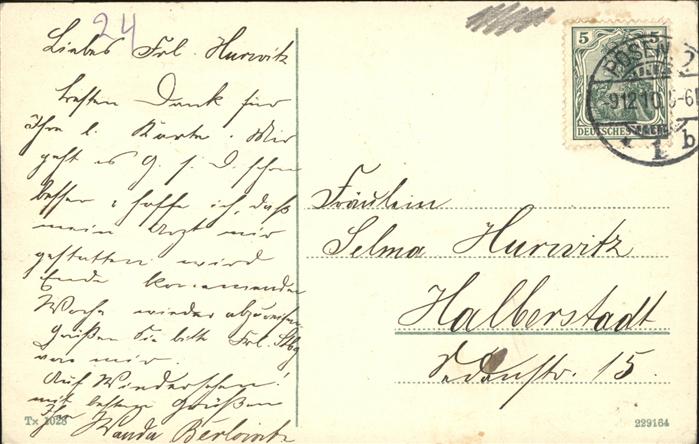 24
Liebes Frl. Hurwitz
besten Dank für
Ihre l. Karte. Mir
geht es G. s. D. schon
besser u. hoffe ich, daß
mein Arzt mir
gestatten wird
Ende kommender
Woche wieder abzureisen
Grüßen Sie bitte Frl. Stbg
von mir.
Auf Wiedersehen!
mit besten Grüßen
Ihre Wanda Berlowitz
Tx 1028
5 5
DEUTSCHES
POSEN
-9.12.10. 5-6
* 1 b
Fräulein
Selma Hurwitz
Halberstadt
Sedanstr. 15.
229164